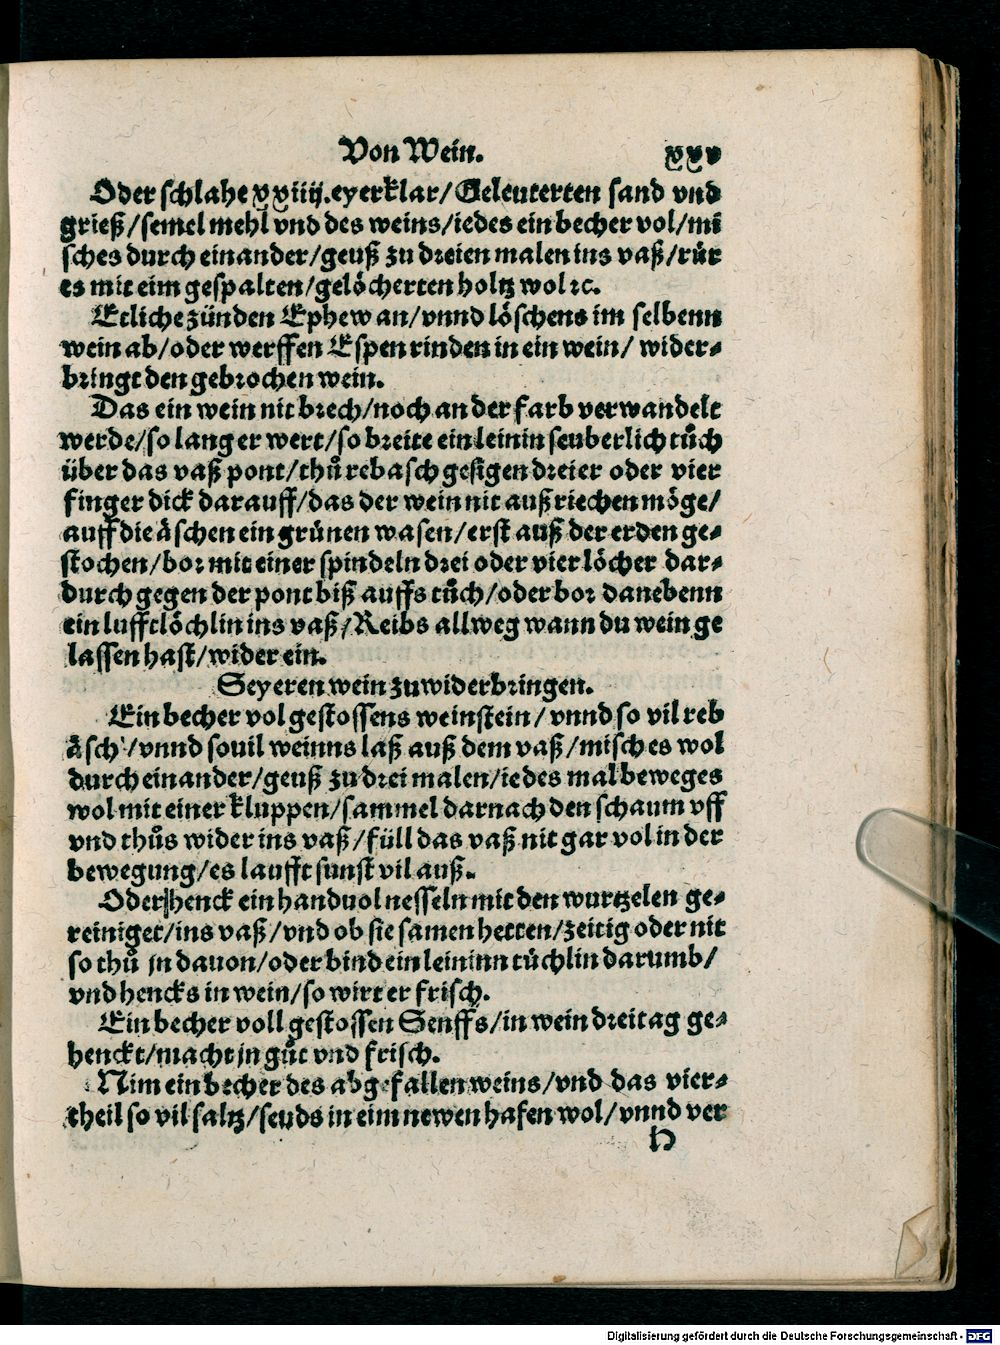 Von Wein. xxv
Oder schlahe xxiiij. eyerklar/ Geleuterten sand vnd
grieß/semel mehl vnd des weins/iedes ein becher vol/mi
sches durch einander/geuß zu dreien malen ins vaß/růr
es mit eim gespalten/gelöcherten holtz wol ꝛc.
Etliche zünden Ephew an/vnnd löschens im selbenn
wein ab/oder werffen Espen rinden in ein wein/ wider⸗
bringt den gebrochen wein.
Das ein wein nit brech/noch an der farb verwandelt
werde/so lang er wert/so breite ein leinin seuberlich tůch
über das vaß pont/thů rebasch gesigen dreier oder vier
finger dick darauff/das der wein nit außriechen möge/
auff die äschen ein grünen wasen/erst auß der erden ge⸗
stochen/bor mit einer spindeln drei oder vier löcher dar⸗
durch gegen der pont biß auffs tůch/oder bor danebenn
ein lufftlöchlin ins vaß/Reibs allweg wann du wein ge
lassen hast/wider ein.
Seyeren wein zu widerbringen.
Ein becher vol gestossens weinstein/vnnd so vil reb
äsch/vnnd souil weinns laß auß dem vaß/misch es wol
durch einander/geuß zu drei malen/iedes mal beweges
wol mit einer kluppen/sammel darnach den schaum vff
vnd thůs wider ins vaß/füll das vaß nit gar vol in der
bewegung/es laufft sunst vil auß.
Oder henck ein handuol nesseln mit den wurtzelen ge⸗
reiniget/ins vaß/vnd ob sie samen hetten/zeitig oder nit
so thů jn dauon/oder bind ein leininn tüchlin darumb/
vnd hencks in wein/so wirt er frisch.
Ein becher voll gestossen Senffs/in wein drei tag ge⸗
henckt/macht jn gůt vnd frisch.
Nim ein becher des abgefallen weins/vnd das vier⸗
theil so vil saltz/seuds in eim newen hafen wol/vnnd ver
H
Digitalisierung gefördert durch die Deutsche Forschungsgemeinschaft - DFG